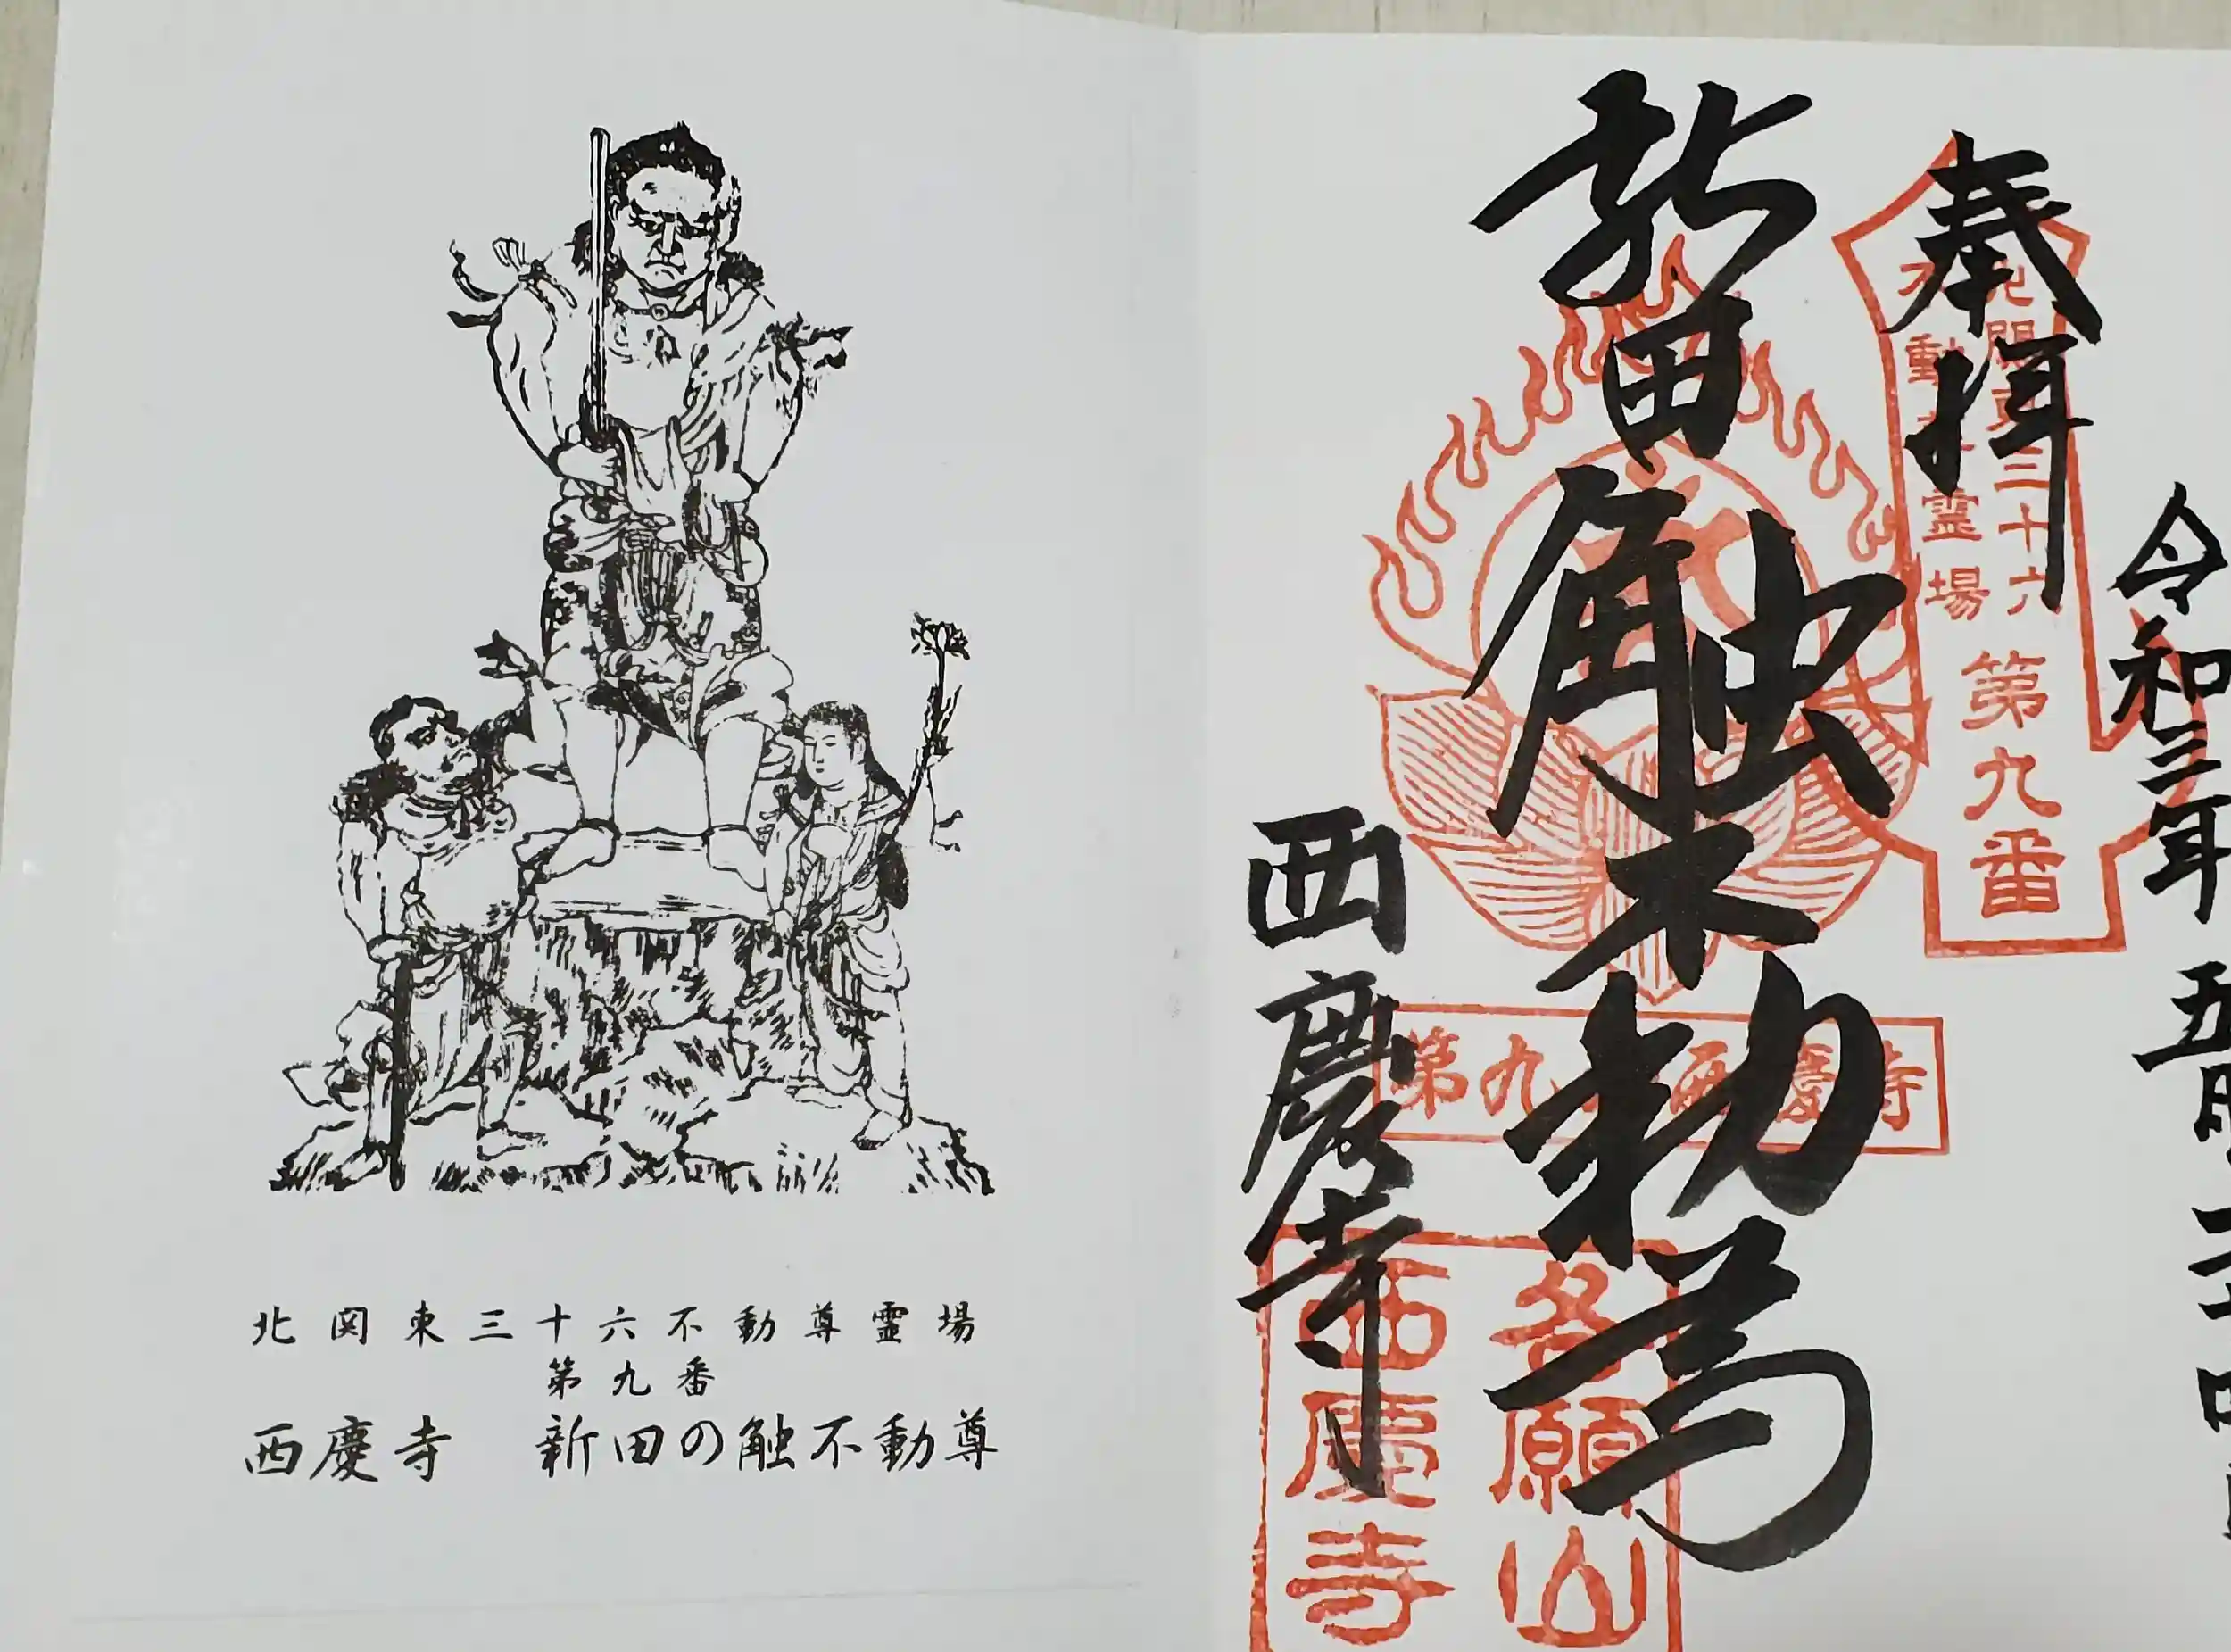 北関東三十六不動尊霊場
第九番
西慶寺 新田の触不動尊
令和三年五月
奉拝
新田触不動尊
西慶寺
北関東三十六
不動尊霊場
第九番
第九番西慶寺
名願山
西慶寺